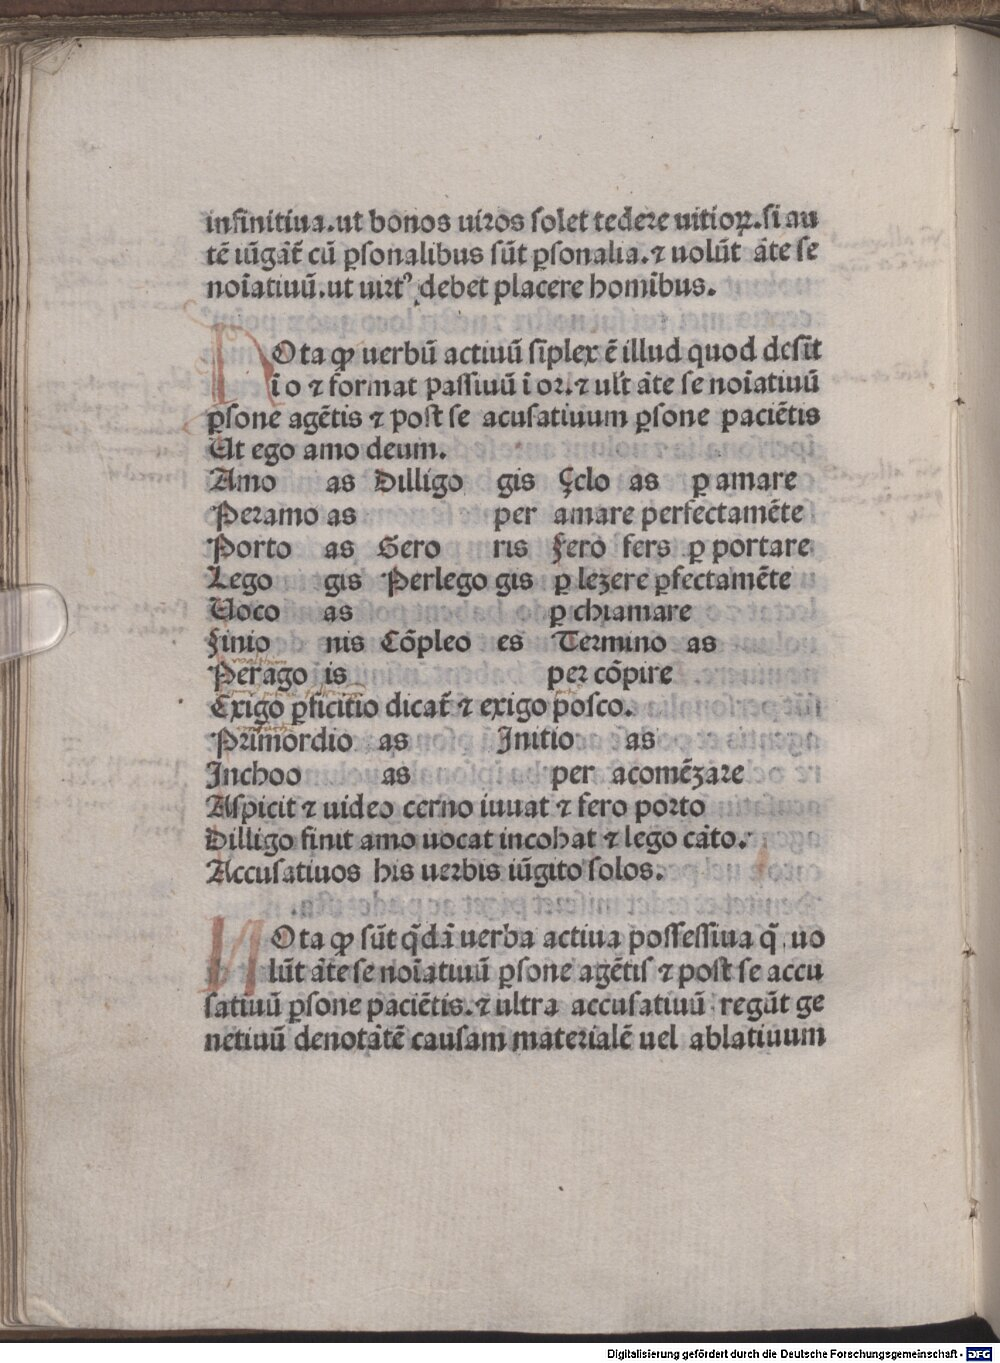 infinitiua.ut bonos uiros solet tedere uitioꝝ.si au
tē iūgāt̄ cū ꝑsonalibus sūt ꝑsonalia.⁊ uolūt āte se
noīatiuū.ut uirtꝰ debet placere homībus.
NOta ꝙ uerbū actiuū sīplex ē illud quod desīt
ī o ⁊ format passiuū ī or.⁊ ult āte se noīatiuū
ꝑsone agētis ⁊ post se acusatiuum ꝑsone paciētis
Ut ego amo deum.
Amo as Dilligo gis Çelo as ꝑ amare
Peramo as per amare perfectamēte
Porto as Gero ris Fero fers ꝑ portare
Lego gis Perlego gis ꝑ lezere ꝑfectamēte
Uoco as ꝑ chiamare
Finio nis Cōpleo es Termino as
Perago is per cōpire
Exigo ꝑficitio dicat̄ ⁊ exigo posco.
Primordio as Initio as
Inchoo as per acomēzare
Aspicit ⁊ uideo cerno iuuat ⁊ fero porto
Dilligo finit amo uocat incohat ⁊ lego cāto.
Accusatiuos his uerbis iūgito solos.
NOta ꝙ sūt q̄dā uerba actiua possessiua q̄ uo
lūt āte se noīatiuū ꝑsone agētis ⁊ post se accu
satiuū ꝑsone paciētis.⁊ ultra accusatiuū regūt ge
netiuū denotātē causam materialē uel ablatiuum
Digitalisierung gefördert durch die Deutsche Forschungsgemeinschaft - DFG